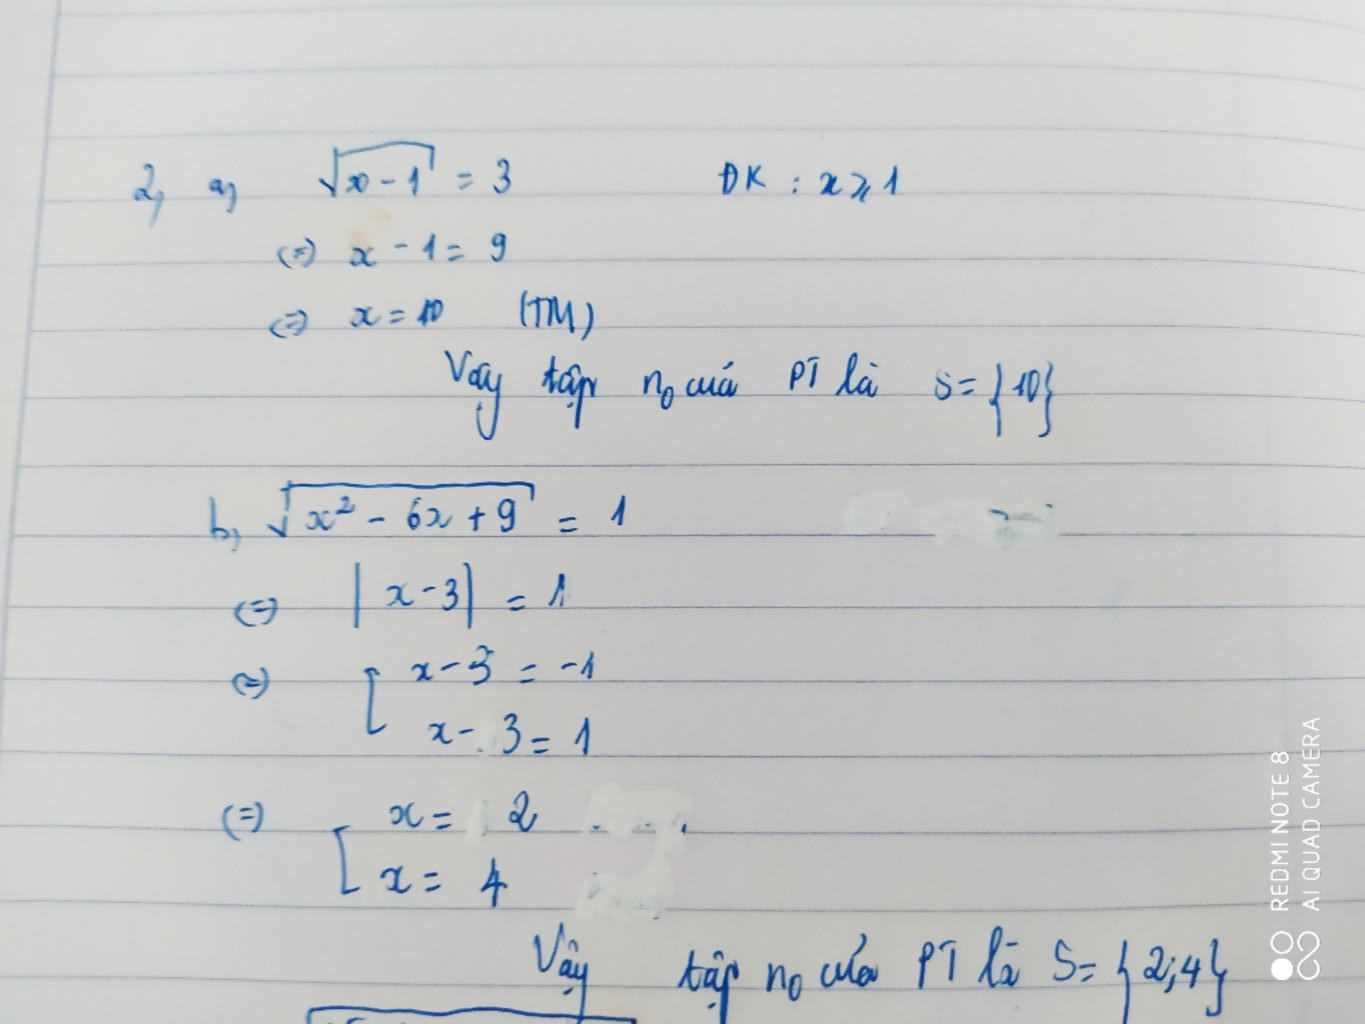 2, a, √(x-1) = 3 ĐK : x ≥ 1
(=) x - 1 = 9
(=) x = 10 (TM)
Vậy tập no cuả PT là S = {10}
b, √(x² - 6x + 9) = 1
(=) |x-3| = 1
(=) [ x-3 = -1
x-3 = 1
(=) [ x = 2
x = 4
Vậy tập no của PT là S = {2;4}
REDMI NOTE 8
AI QUAD CAMERA